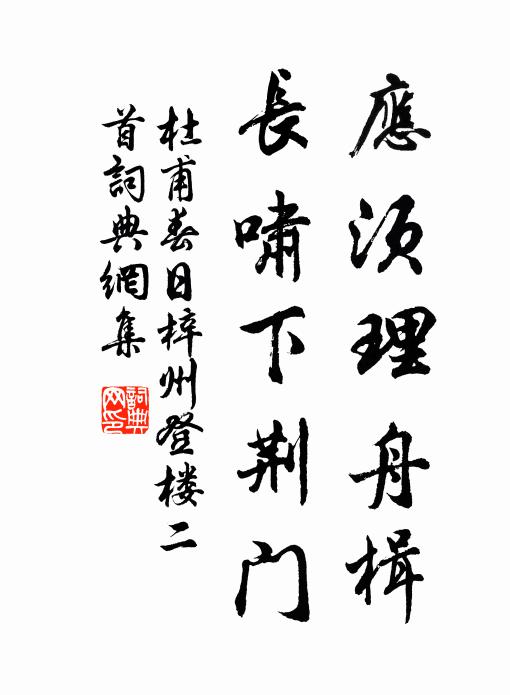 應須理舟楫
長嘯下荆门
杜甫春日梓州登楼二
首詞典網集
詞典
网印